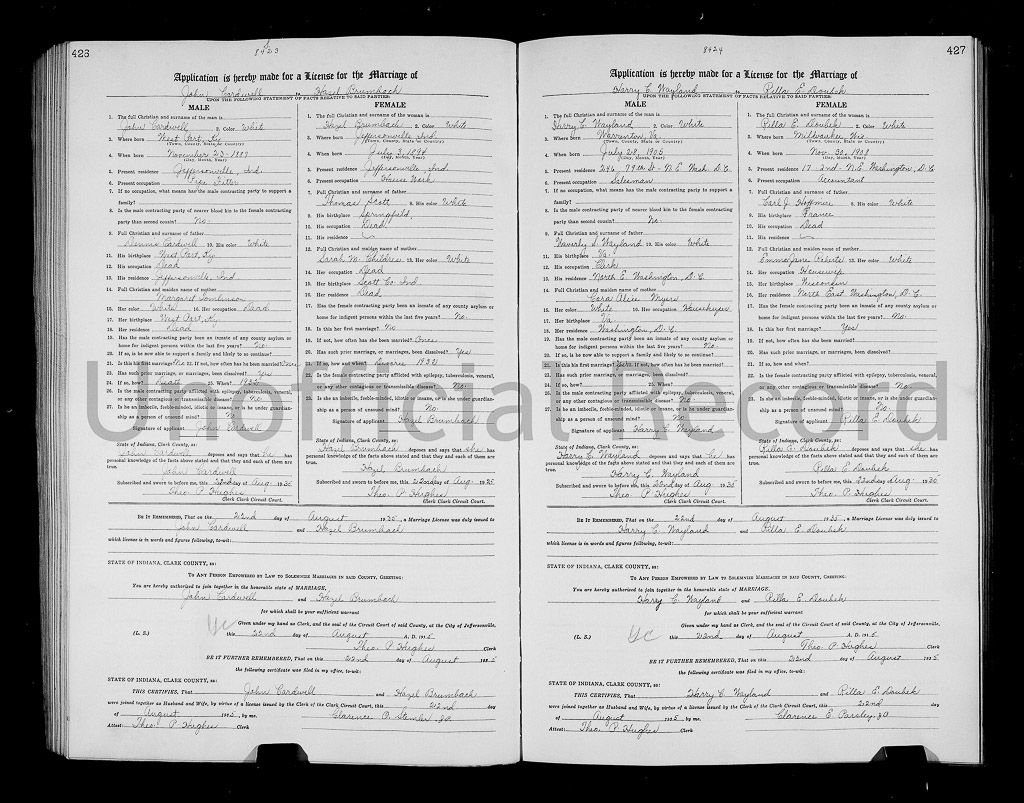 426
8423
Application is hereby made for a License for the Marriage of
John Cardwell to Hazel Brumbach
UPON THE FOLLOWING STATEMENT OF FACTS RELATIVE TO SAID PARTIES:
MALE
1. The full Christian and surname of the man is
John Cardwell 2. Color White
3. Where born West Port, Ky
(Town, County, State or Country)
4. When born November 23-1887
(Day, Month, Year)
5. Present residence Jeffersonville, Ind.
6. Present occupation Pipe Fitter
7. If no occupation, what means has the male contracting party to support a
family?
8. Is the male contracting party of nearer blood kin to the female contracting
party than second cousin? No.
9. Full Christian and surname of father
Dennis Cardwell 10. His color White
11. His birthplace West Port, Ky
12. His occupation Dead
13. His residence Jeffersonville, Ind
14. Full Christian and maiden name of mother
Margaret Tomlinson
15. Her color White 16. Her occupation Dead
17. Her birthplace West Port, Ky
18. Her residence Dead
19. Has the male contracting party been an inmate of any county asylum or
home for indigent persons within the last five years? No
20. If so, is he now able to support a family and likely to so continue?
21. Is this his first marriage? No 22. If not, how often has he been married?
23. Has such prior marriage, or marriages, been dissolved? Yes
24. If so, how? Death 25. When? 1932
26. Is the male contracting party afflicted with epilepsy, tuberculosis, venereal,
or any other contagious or transmissible disease? No.
27. Is he an imbecile, feeble-minded, idiotic or insane, or is he under guardian-
ship as a person of unsound mind? No
Signature of applicant John Cardwell
State of Indiana, Clark County, ss:
John Cardwell deposes and says that he has
personal knowledge of the facts above stated and that they and each of them are
true.
John Cardwell
Subscribed and sworn to before me, this 22nd day of Aug 1935
Theo. P. Hughes
Clerk Clark Circuit Court.
FEMALE
1. The full Christian and surname of the woman is
Hazel Brumbach 2. Color White
3. Where born Jeffersonville, Ind.
(Town, County, State or Country)
4. When born July 3, 1894
(Day, Month, Year)
5. Present residence Jeffersonville, Ind.
6. Present occupation House Work
7. Full Christian and surname of father
Thomas Scott 8. His color White
9. His birthplace Springfield,
10. His occupation Dead
11. His residence
12. Full Christian and maiden name of mother
Sarah M. Childres 13. Her color White
14. Her occupation Dead
15. Her birthplace Scott Co. Ind.
16. Her residence Dead
17. Has the female contracting party been an inmate of any county asylum or
home for indigent persons within the last five years? No.
18. Is this her first marriage? No
19. If not, how often has she been married? Once
20. Has such prior marriage, or marriages, been dissolved? Yes
21. If so, how and when? Divorce 1932
22. Is the female contracting party afflicted with epilepsy, tuberculosis, venereal,
or any other contagious or transmissible disease? No.
23. Is she an imbecile, feeble-minded, idiotic or insane, or is she under guardian-
ship as a person of unsound mind? No.
Signature of applicant Hazel Brumbach
State of Indiana, Clark County, ss:
Hazel Brumbach deposes and says that she has
personal knowledge of the facts above stated and that they and each of them are
true.
Hazel Brumbach
Subscribed and sworn to before me, this 22nd day of Aug. 1935
Theo. P. Hughes
Clerk Clark Circuit Court.
BE IT REMEMBERED, That on the 22nd day of August 1935, a Marriage License was duly issued to
John Cardwell and Hazel Brumbach
which license is in words and figures following, to-wit:
STATE OF INDIANA, CLARK COUNTY, ss:
TO ANY PERSON EMPOWERED BY LAW TO SOLEMNIZE MARRIAGES IN SAID COUNTY, GREETING:
You are hereby authorized to join together in the honorable state of MARRIAGE,
John Cardwell and Hazel Brumbach
for which shall be your sufficient warrant
Given under my hand as Clerk, and the seal of the Circuit Court of said County, at the City of Jeffersonville,
(L. S.) this 22nd day of August A. D. 1935
Theo. P. Hughes Clerk
BE IT FURTHER REMEMBERED, That on this 22nd day of August 1935
the following certificate was filed in my office, to-wit:
STATE OF INDIANA, CLARK COUNTY, ss:
THIS CERTIFIES, That John Cardwell and Hazel Brumbach
were joined together as Husband and Wife, by virtue of a license issued by the Clerk of the Clark Circuit Court, this 22nd day
of August 1935, by me.
Attest: Theo. P. Hughes Clerk
427
8424
Application is hereby made for a License for the Marriage of
Harry C. Wayland to Rilla E. Doubek
UPON THE FOLLOWING STATEMENT OF FACTS RELATIVE TO SAID PARTIES:
MALE
1. The full Christian and surname of the man is
Harry C. Wayland 2. Color White
3. Where born Warrenton, Va.
(Town, County, State or Country)
4. When born July 28, 1905
(Day, Month, Year)
5. Present residence 246 79th St - N.E. Wash. D.C.
6. Present occupation Salesman
7. If no occupation, what means has the male contracting party to support a
family?
8. Is the male contracting party of nearer blood kin to the female contracting
party than second cousin? No.
9. Full Christian and surname of father
Waverly S. Wayland 10. His color White
11. His birthplace Va.
12. His occupation Clerk
13. His residence North E. Washington, D.C.
14. Full Christian and maiden name of mother
Cora Alice Myers
15. Her color White 16. Her occupation Housekeeper
17. Her birthplace Va.
18. Her residence Washington, D.C.
19. Has the male contracting party been an inmate of any county asylum or
home for indigent persons within the last five years? No.
20. If so, is he now able to support a family and likely to so continue?
21. Is this his first marriage? Yes 22. If not, how often has he been married?
23. Has such prior marriage, or marriages, been dissolved?
24. If so, how? 25. When?
26. Is the male contracting party afflicted with epilepsy, tuberculosis, venereal,
or any other contagious or transmissible disease? No
27. Is he an imbecile, feeble-minded, idiotic or insane, or is he under guardian-
ship as a person of unsound mind? No
Signature of applicant Harry C. Wayland
State of Indiana, Clark County, ss:
Harry C. Wayland deposes and says that he has
personal knowledge of the facts above stated and that they and each of them are
true.
Harry C. Wayland
Subscribed and sworn to before me, this 22nd day of Aug 1935
Theo. P. Hughes
Clerk Clark Circuit Court.
FEMALE
1. The full Christian and surname of the woman is
Rilla E. Doubek 2. Color White
3. Where born Milwaukee, Wis.
(Town, County, State or Country)
4. When born Nov. 30, 1908
(Day, Month, Year)
5. Present residence 17-2nd-N.E. Washington, D.C.
6. Present occupation Accountant
7. Full Christian and surname of father
Earl J. 8. His color White
9. His birthplace France
10. His occupation Dead
11. His residence
12. Full Christian and maiden name of mother
Emma Jane 13. Her color White
14. Her occupation Housewife
15. Her birthplace Wisconsin
16. Her residence North East Washington, D.C.
17. Has the female contracting party been an inmate of any county asylum or
home for indigent persons within the last five years? No.
18. Is this her first marriage? Yes
19. If not, how often has she been married?
20. Has such prior marriage, or marriages, been dissolved?
21. If so, how and when?
22. Is the female contracting party afflicted with epilepsy, tuberculosis, venereal,
or any other contagious or transmissible disease? No.
23. Is she an imbecile, feeble-minded, idiotic or insane, or is she under guardian-
ship as a person of unsound mind? No.
Signature of applicant Rilla E. Doubek
State of Indiana, Clark County, ss:
Rilla E. Doubek deposes and says that she has
personal knowledge of the facts above stated and that they and each of them are
true.
Rilla E. Doubek
Subscribed and sworn to before me, this 22nd day of Aug 1935
Theo. P. Hughes
Clerk Clark Circuit Court.
BE IT REMEMBERED, That on the 22nd day of August 1935, a Marriage License was duly issued to
Harry C. Wayland and Rilla E. Doubek
which license is in words and figures following, to-wit:
STATE OF INDIANA, CLARK COUNTY, ss:
TO ANY PERSON EMPOWERED BY LAW TO SOLEMNIZE MARRIAGES IN SAID COUNTY, GREETING:
You are hereby authorized to join together in the honorable state of MARRIAGE,
Harry C. Wayland and Rilla E. Doubek
for which shall be your sufficient warrant
Given under my hand as Clerk, and the seal of the Circuit Court of said County, at the City of Jeffersonville,
(L. S.) this 22nd day of August A. D. 1935
Theo. P. Hughes Clerk
BE IT FURTHER REMEMBERED, That on this 22nd day of August 1935
the following certificate was filed in my office, to-wit:
STATE OF INDIANA, CLARK COUNTY, ss:
THIS CERTIFIES, That Harry C. Wayland and Rilla E. Doubek
were joined together as Husband and Wife, by virtue of a license issued by the Clerk of the Clark Circuit Court, this 22nd day
of August 1935, by me. Clarence E. Parsley, J.P.
Attest: Theo. P. Hughes Clerk
Unofficial Record